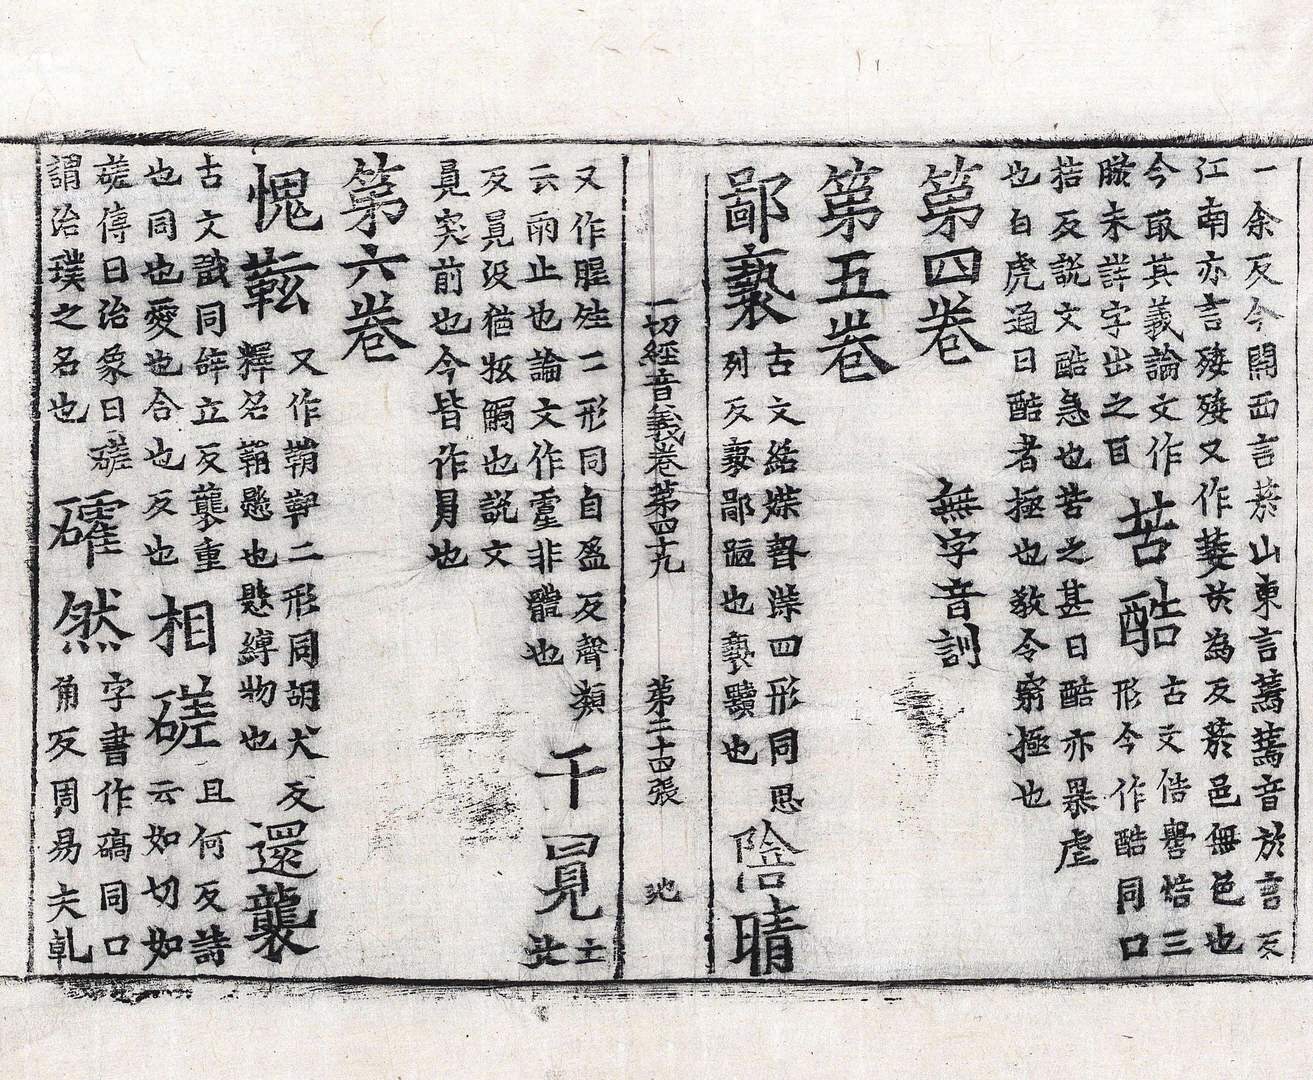 一余反今關西言菸山東言蔫蔫音於言反
江南亦言殗殗又作萎於為反菸邑無色也
今取其義論文作
睒未詳字出之目
苦酷
古文俈嚳焅三
形今作酷同口
梏反説文酷急也苦之甚曰酷亦暴虐
也白虎通曰酷者極也教令窮極也
第四卷 無字音訓
第五卷
鄙褻
古文結媟暬渫四形同思
列反褻鄙陋也褻黷也
陰晴
一切經音義卷第四十九 第二十四張 弛
又作暒姓二形同自盈反聲類
云雨止也論文作霪非體也
千㒻
亡
北
反㒻沒猶抵觸也説文
㒻突前也今皆作月也
第六卷
愧䩙
又作䩸䩓二形同胡犬反
釋名䩸懸也懸縛物也
還襲
古文戠同辞立反襲重
也同也愛也合也反也
相磋
且何反詩
云如切如
磋傳曰治象曰磋
謂治璞之名也
確然
字書作碻同口
角反周易夫乹